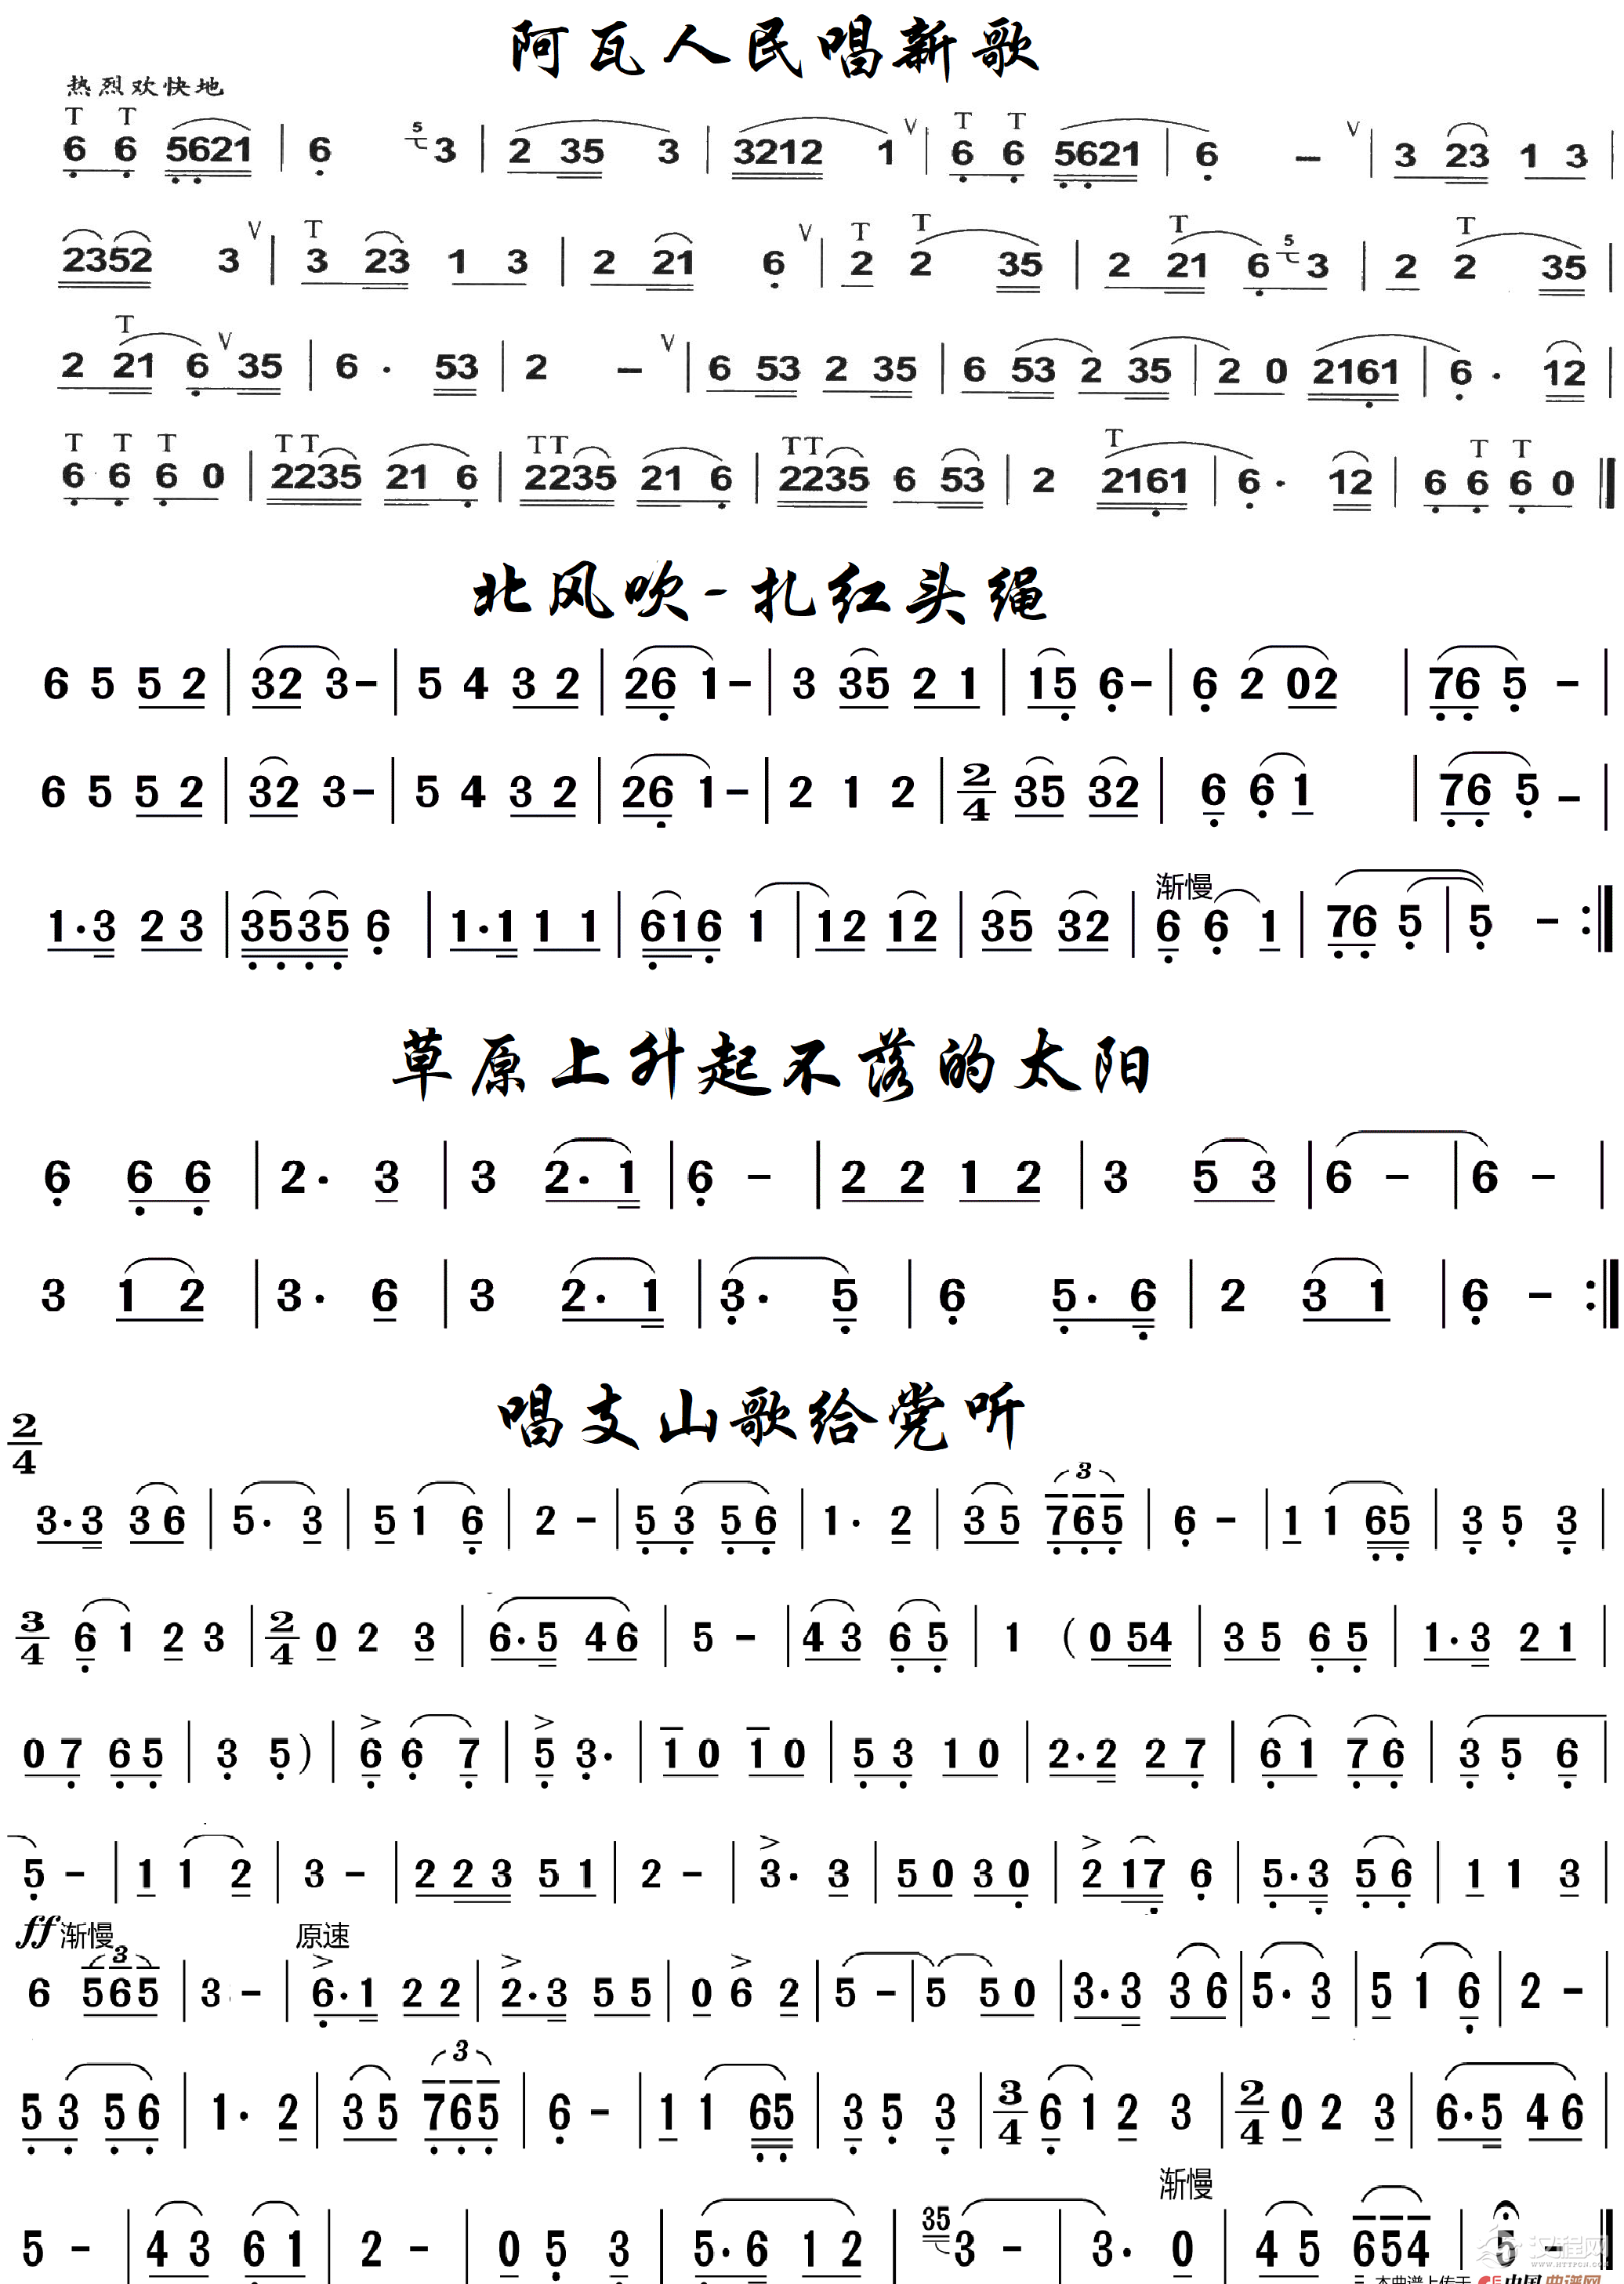 阿瓦人民唱新歌
热烈欢快地
T T T T
6 6 5621 | 6 5 3 | 2 35 3 | 3212 1 V | 6 6 5621 | 6 - V | 3 23 1 3 |
T T T T T
2352 3 V | 3 23 1 3 | 2 21 6 V | 2 2 35 | 2 21 6 5 3 | 2 2 35 |
T
2 21 6 V 35 | 6 · 53 | 2 - V | 6 53 2 35 | 6 53 2 35 | 2 0 2161 | 6 · 12 |
T T T TT TT TT T T T
6 6 6 0 | 2235 21 6 | 2235 21 6 | 2235 6 53 | 2 2161 | 6 · 12 | 6 6 6 0 ‖
北风吹-扎红头绳
6 5 5 2 | 32 3 - | 5 4 3 2 | 26 1 - | 3 35 2 1 | 15 6 - | 6 2 02 | 76 5 - |
6 5 5 2 | 32 3 - | 5 4 3 2 | 26 1 - | 2 1 2 | 2/4 35 32 | 6 6 1 | 76 5 - |
渐慢
1·3 2 3 | 3535 6 | 1·1 1 1 | 616 1 | 12 12 | 35 32 | 6 6 1 | 76 5 | 5 - :‖
草原上升起不落的太阳
6 6 6 | 2· 3 | 3 2· 1 | 6 - | 2 2 1 2 | 3 5 3 | 6 - | 6 - |
3 1 2 | 3· 6 | 3 2· 1 | 3· 5 | 6 5· 6 | 2 3 1 | 6 - :‖
唱支山歌给党听
2/4
3 
3·3 3 6 | 5· 3 | 5 1 6 | 2 - | 5 3 5 6 | 1· 2 | 3 5 765 | 6 - | 1 1 65 | 3 5 3 |
3/4 6 1 2 3 | 2/4 0 2 3 | 6·5 4 6 | 5 - | 4 3 6 5 | 1 ( 0 54 | 3 5 6 5 | 1·3 2 1 |
0 7 6 5 | 3 5 ) | > 6 6 7 | > 5 3· | 1 0 1 0 | 5 3 1 0 | 2·2 2 7 | 6 1 7 6 | 3 5 6 |
5 - | 1 1 2 | 3 - | 2 2 3 5 1 | 2 - | > 3· 3 | 5 0 3 0 | > 2 17 6 | 5·3 5 6 | 1 1 3 |
ff 渐慢 3 原速
6 565 | 3 - | > 6·1 2 2 | > 2·3 5 5 | 0 > 6 2 | 5 - | 5 5 0 | 3·3 3 6 | 5· 3 | 5 1 6 | 2 - |
3
5 3 5 6 | 1· 2 | 3 5 765 | 6 - | 1 1 65 | 3 5 3 | 3/4 6 1 2 3 | 2/4 0 2 3 | 6·5 4 6 |
渐慢
5 - | 4 3 6 1 | 2 - | 0 5 3 | 5·6 1 2 | 35 3 - | 3· 0 | 4 5 654 | 5 - ‖
汉程网
WWW.HTTPCN.COM
本曲谱上传于 中国曲谱网